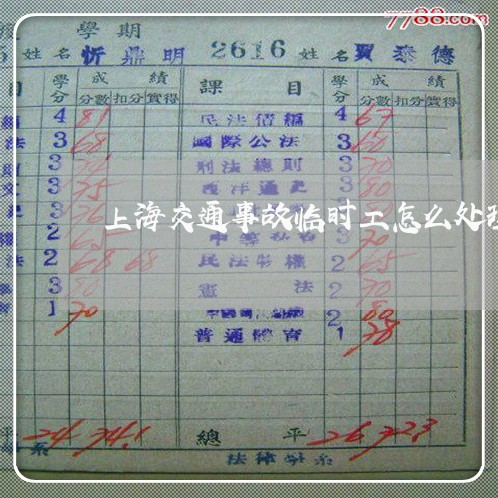 7788.com
學期
姓名 忻鼎明 2616 姓名 賈泰德
目 學分 成績 分數 扣分 實得 課目 學分 成績 分數 扣分 實得
4 81 民法債編 4 67
法 3 68 國際公法 3 60
3 刑法總則 3 70
3 75 西洋通史 3 80
史 3 76 3
上海交通事故临时工怎么处理
權 2 65 3 70
法 2 68 68 民法物權 2 65
3 80 憲法 2 70
育 1 70 2 80
普通體育 1 78
平 24 74.1 總平 26 72.3
系 法律學系